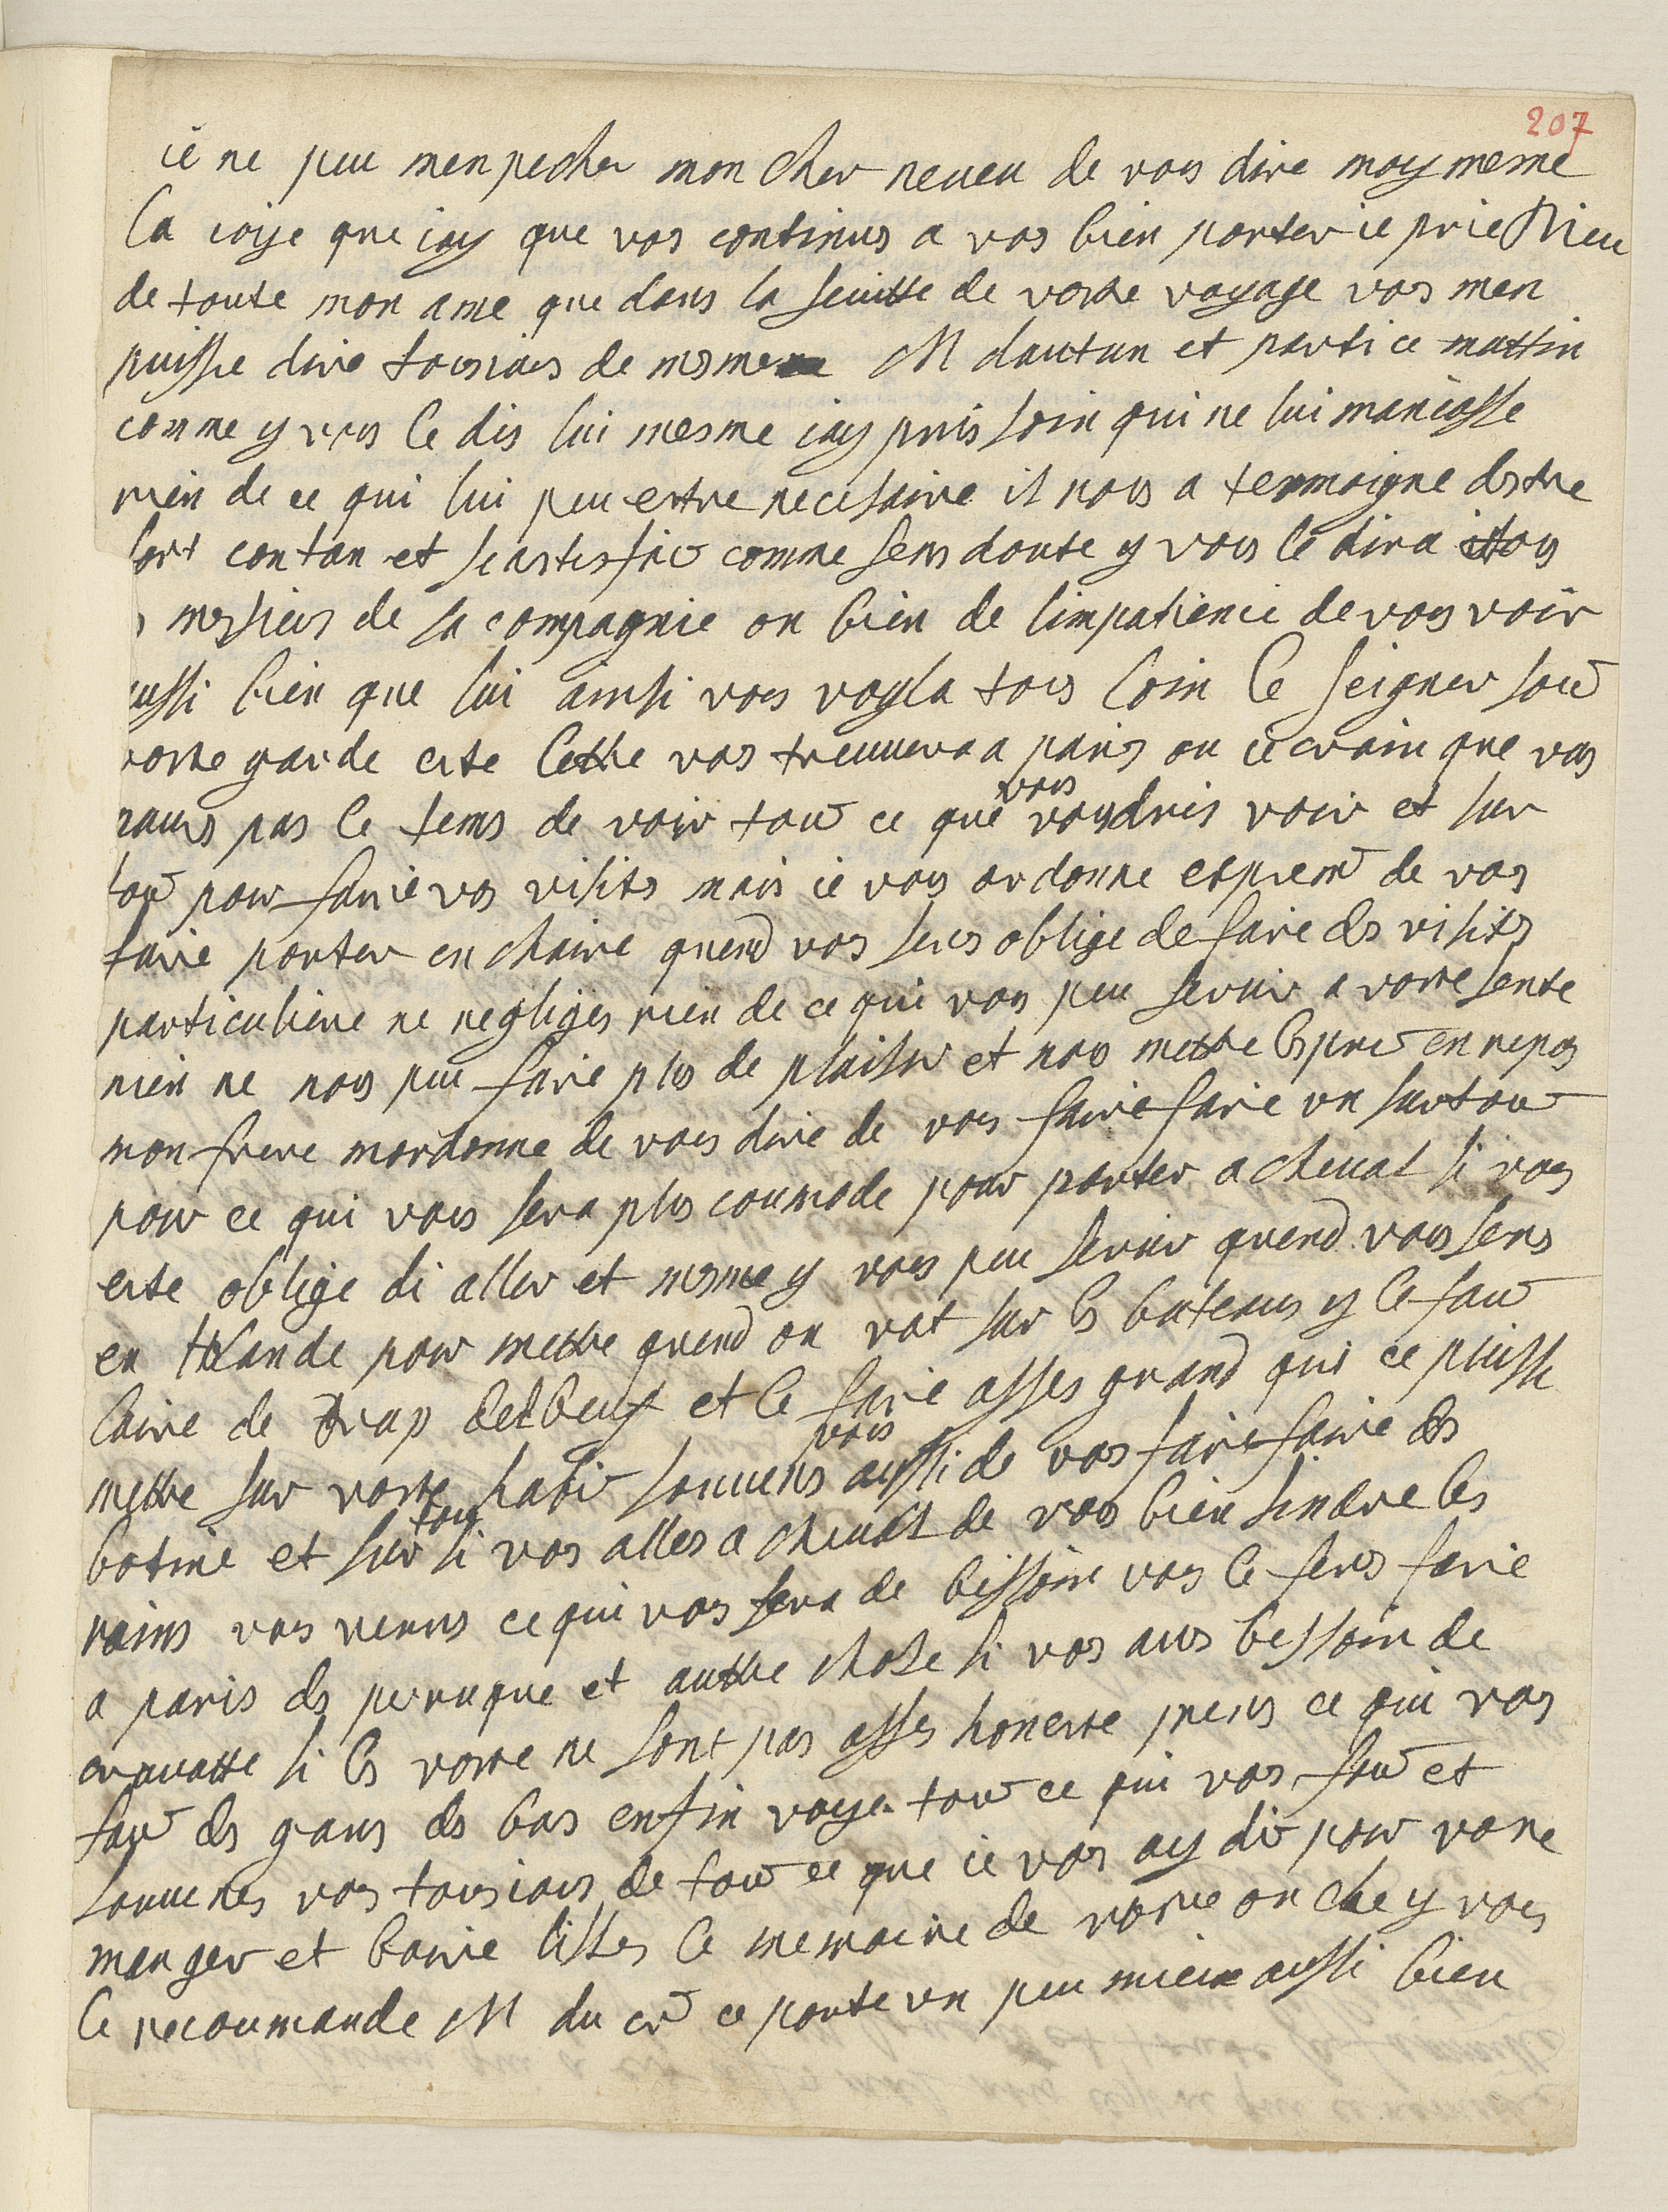 207
ie ne peu menpecher mon cher neueu de vous dire moy mesme
la ioye que iay que vos continus a vos bien porter ie prie Dieu
de toute mon ame que dans la seuitte de vostre voyage vos men
puisse dire tousiours de mesme M dautun et parti ce mattin
comme y vous le dis lui mesme iay pris soin qui ne lui manuasse
rien de ce qui lui peu estre necesaire il nous a termoigne destre
fort contan et seastesfait comme sens doute y vous le dira
messieurs de sa compagnie on bien de limpatience de vous voir
aussi bien que lui ainsi vous voyla tous loin le seigneur soit
vostre garde cete lettre vos treuuera a paris ou ie crain que vos
naurs pas le tems de voir tout ce que vous voudris voir et sur
tout pour faire vos visites mais ie vous ordonne expremt de vos
faire porter en chaire quend vos seres oblige de faire des visites
particuliere ne negliges rien de ce qui vous peu seruir a vostre sente
rien ne nous peu faire plus de plaisir et nous mettre lesprit en repos
mon frere mordonne de vous dire de vous faire faire vn surtout
pour ce qui vous sera plus coumode pour porter a cheual si vous
este oblige di aller et mesme y vous peu seruir quend vous seres
en hollande pour mettre quend on vat sur les bateaus y le faut
faire de drap delbeuf et le faire asses grand qui ce puisse
mettre sur vostre habit souuens vous aussi de vos faire faire des
botine et sur tout si vos alles a cheual de vous bien sindre les
rains vos veres ce qui vos sera de bessoin vos le feres faire
a paris des peruque et auttre chose si vos aues bessoin de
crauatte si les vostre ne sont pas asses honeste prenes ce qui vos
faut des gans des bas enfin voyes tout ce qui vos faut et
souuenes vos tousiours de tout ce que ie vos ay dit pour vostre
manger et boire lisses le memoire de vostre oncle y vous
le recoumande M du cr ce porte vn peu mieus aussi bien